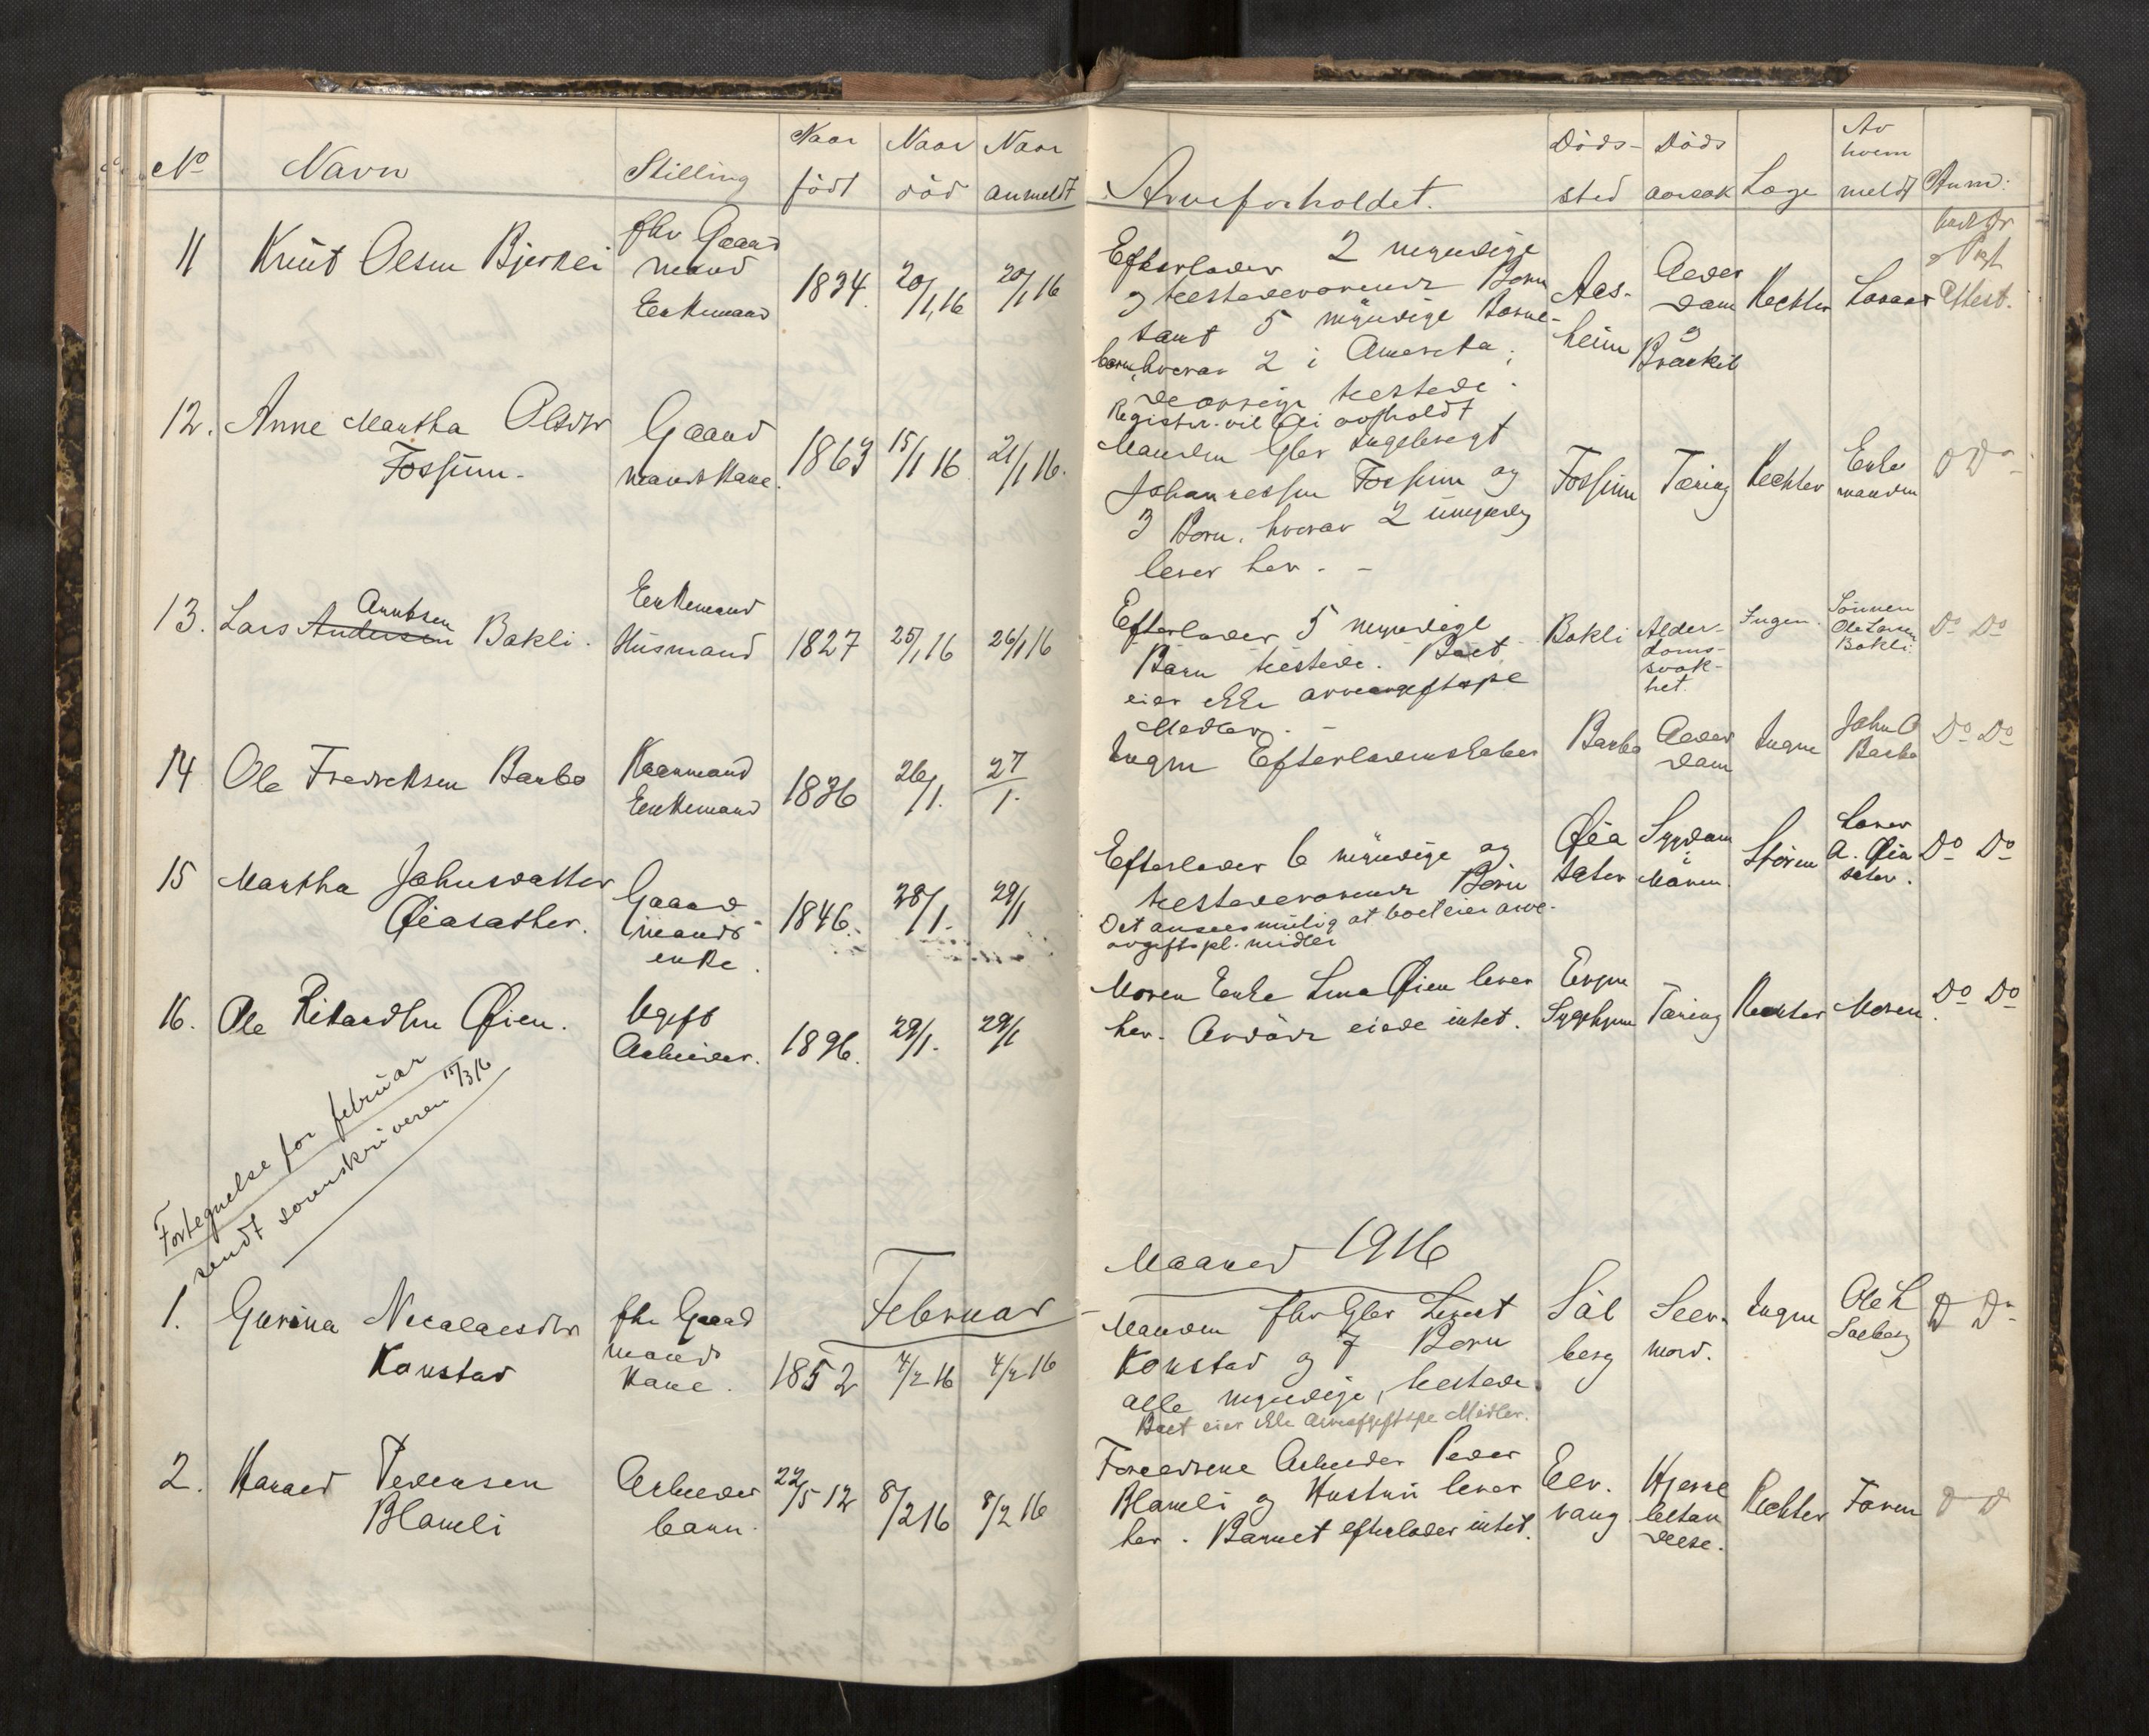 No Navn Stilling Naar födt Naar död Naar anmeldt
Arveforholdet. Döds-sted Döds aarsak Læge Av hvem meldt Anm:
11 Knut Olsen Bjerkli
fhv Gaard
mand
Enkemand
1834. 20/1 16 20/1 16
Efterlader 2 myndige
og tilstedeværende Børn
samt 5 myndige Børne-
børn, hvorav 2 i Amerika,
de øvrige tilstede.
Aas-
heim
Alder
dom
og
Brøkk
Richter
Attest.
12. Anne Martha Olsdtr
Fossum.
Gaard
mandskone.
1863 15/1 16 21/1 16.
Registr. vil bli avholdt
Manden Gbr Ingebrigt
Johannessen Fossum og
3 Børn, hvorav 2 umyndig
lever her. -
Fossum Tæring Richter
Enke
manden
Do
13. Lars Andersen Arntsen Bakli.
Enkemand
Husmand
1827 25/1 16 26/1 16
Efterlader 5 myndige
Børn tilstede. Boet
eier ikke arveavgiftspl
Midler. -
Bakli
Alder-
doms-
svak-
het.
Ingen.
Sönnen
Ole Larsen
Bakli.
Do Do
14 Ole Fredriksen Barbo
Kaarmand
Enkemand
1836 26/1. 27/1.
Ingen Efterladenskaber
Barbo
Alder
dom
Ingen
John O
Barbo
Do Do
15 Martha Johnsdatter
Øiasæther.
Gaard
mands-
enke.
1846. 28/1. 29/1
Efterlader 6 myndige og
tilstedeværende Børn
Det ansees mulig at boet eier arve-
avgiftspl. midler
Øia
sæter
Sygdom
i
Maven.
Stören
A. Øia
sæter.
Do Do
16. Ole Rikardsen Øien.
Ugift
Arbeider.
1896. 29/1. 29/1
Moren Enke Lina Øien lever
her. Avdöde eiede intet.
Sygehjem
Tæring Richter Moren. Do Do
Fortegnelse for februar
sendt sorenskriveren 15/3 16
Februar Maaned 1916
1. Gurina Nicolaisdtr
Konstad
fhv Gaard
mands
Kone.
1852 4/2 16 4/2 16
Manden fhv Gbr Sivert
Konstad og 7 Børn
alle myndige, tilstede.
Boet eier ikke Arveafgiftspl Midler.
Sol
berg
Selv-
mord.
Ingen
Ole L
Solberg
Do Do
2. Harald Pedersen
Blomli
Arbeider
barn.
22/5 12 8/2 16 8/2 16
Forældrene Arbeider Peder
Blomli og Hustru lever
her. Barnet efterlader intet.
Elv.
vang
Hjerne
betæn
delse.
Richter Faren Do Do